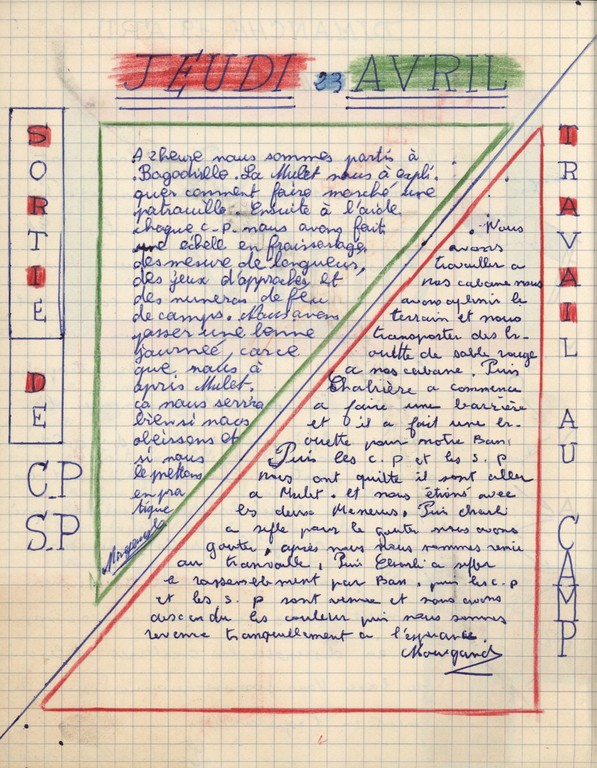 JEUDI 23 AVRIL
SORTIE DE
CP
S.P
A 2heure nous sommes partis à
Bagadielle. La Mulet nous à expli.
quer comment faire marché une
patrouille. Ensuite à l'aide
chaque c-p. nous avons fait
une échell en froissartage,
des mesure de longueurs,
des jeux d'approches et
des numeros de feu
de camps. Nous avons
passer une bonne
journée, car ce
que nous à
apris Mulet,
ça nous servira
bien si nous
obeissons et
si nous
le mettons
en pra
tique
TRAVAIL AU CAMP
Nous
avons
travailler a
nos cabane nous
avons aplenir le
terrain et nous
transporter des br-
ouette de sable rouge
a nos cabane. Puis
Chabrière a commence
a faire une barrière
et il a fait une br-
ouette pour notre Ban.
Puis les c.p et les s.p
nous ont quitte il sont aller
a Mulet. et nous étions avec
les deux Meneurs. Puis charli
a sifle pour le gouter nous avons
gouter, après nous nous sommes remie
au transvalle. Puis Charli a sifler
le rassemblement par Ban. puis les c.p
et les s.p sont venue et nous avons
descendu les couleur puis nous sommes
revenue tranquillement a
Mourgand